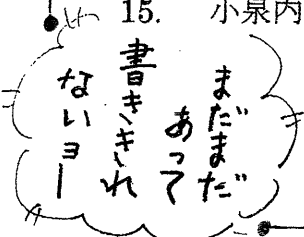 15. 小泉内
まだまだ
あって
書ききれ
ないヨー